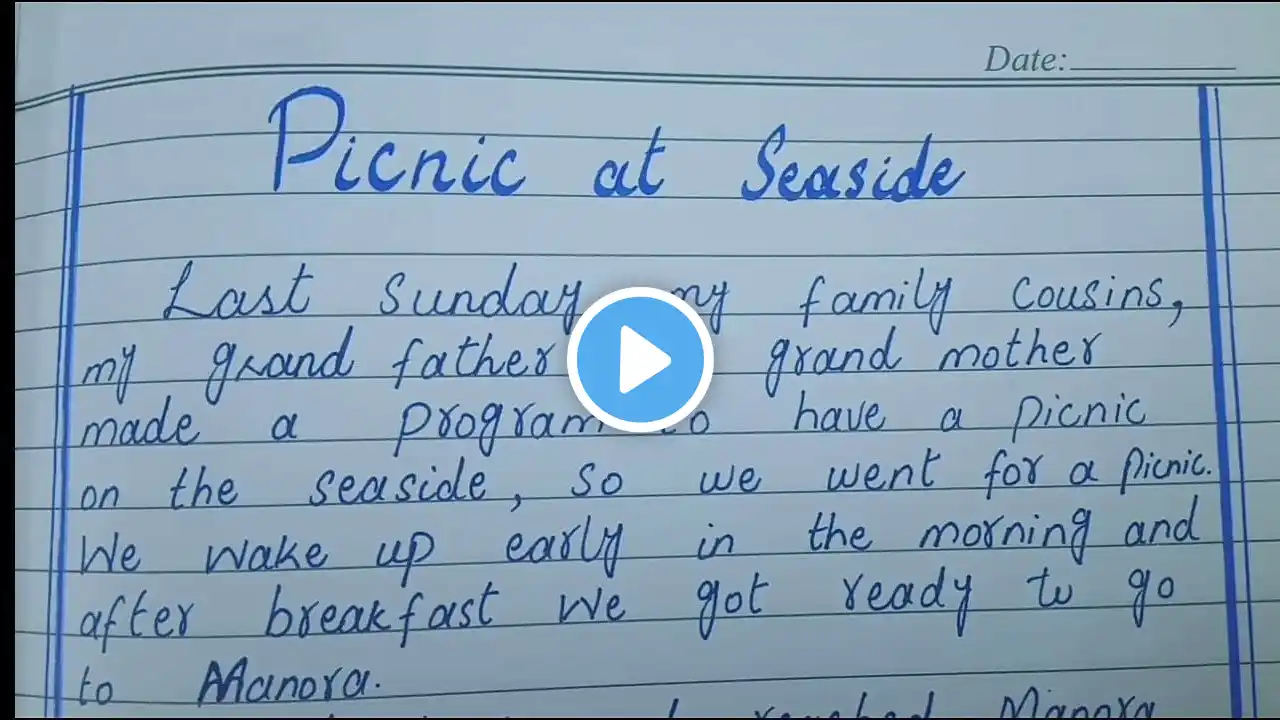 Date:
Picnic at Seaside
Last Sunday my family cousins,
my grand father grand mother
made a program to have a picnic
on the seaside, so we went for a picnic.
We wake up early in the morning and
after breakfast we got ready to go
to Manora.
reached Manora